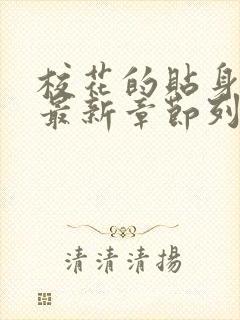 校花的貼身
最新章節列
清清清揚